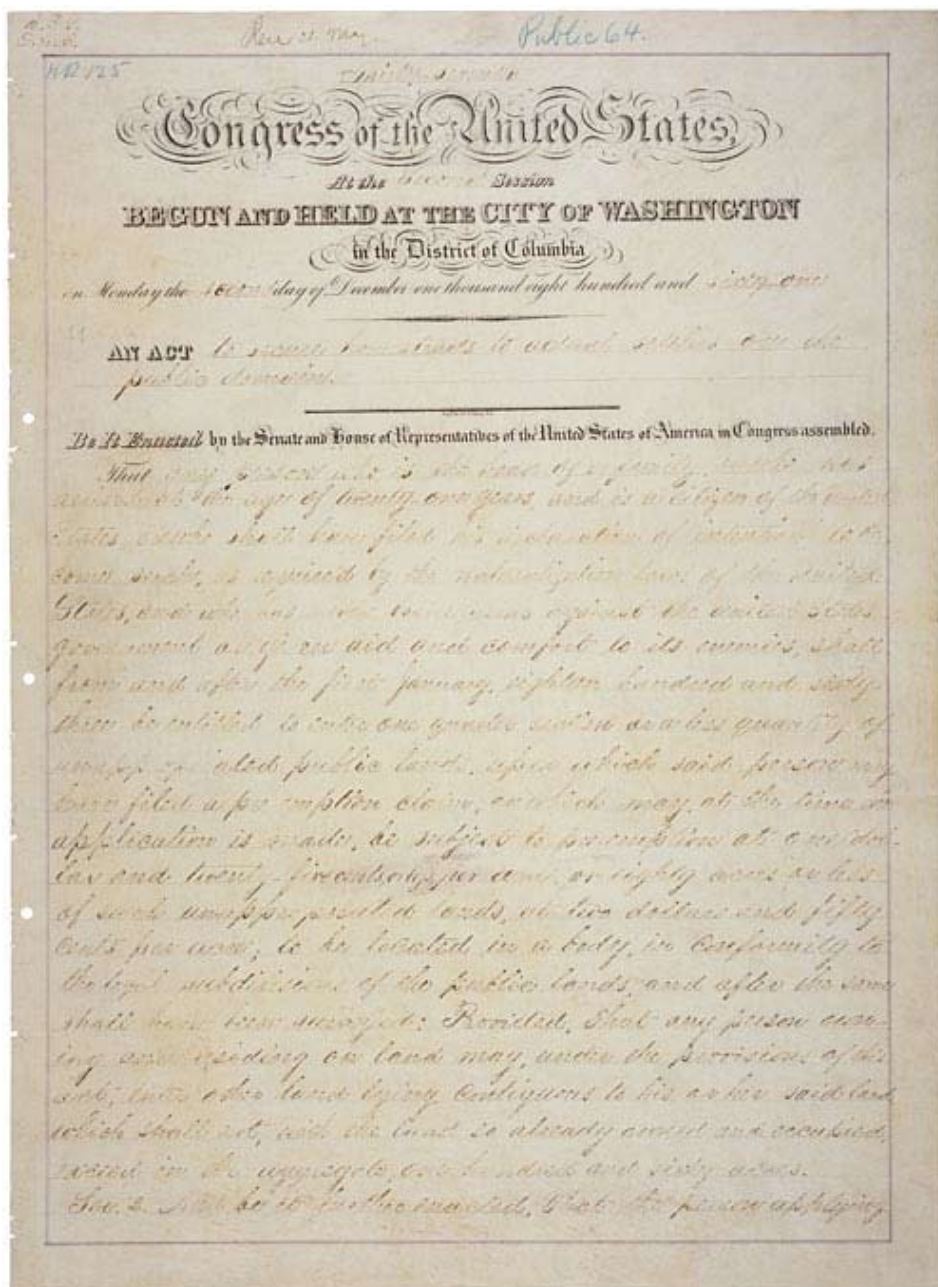 Public 64.
HR 125
Thirty-seventh
Congress of the United States,
At the second Session
BEGUN AND HELD AT THE CITY OF WASHINGTON
in the District of Columbia
on Monday the second day of December one thousand eight hundred and sixty-one
AN ACT to secure homesteads to actual settlers on the
public domain.
Be It Enacted by the Senate and House of Representatives of the United States of America in Congress assembled,
That any person who is the head of a family, or who has
arrived at the age of twenty-one years, and is a citizen of the United
States, or who shall have filed his declaration of intention to be-
come such, as required by the naturalization laws of the United
States, and who has never borne arms against the United States
government or given aid and comfort to its enemies, shall
from and after the first January, eighteen hundred and sixty-
three be entitled to enter one quarter section or a less quantity of
unappropriated public lands, upon which said person may
have filed a preemption claim, or which may, at the time the
application is made, be subject to preemption at one dol-
lar and twenty-five cents, or less, per acre, or eighty acres or less
of such unappropriated lands, at two dollars and fifty
cents per acre, to be located in a body, in conformity to
the legal subdivisions of the public lands and after the same
shall have been surveyed: Provided, That any person own-
ing and residing on land may, under the provisions of this
act, enter other land lying contiguous to his or her said land
which shall not, with the land so already owned and occupied,
exceed in the aggregate one hundred and sixty acres.
Sec. 2. And be it further enacted, That the person applying